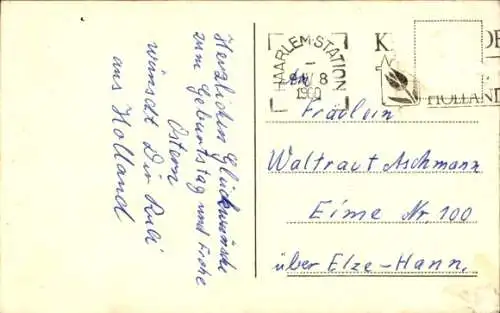 Herzlichen Glückwünsche
zum Geburtstag und Frohe
Ostern
wünscht Dir Rudi
aus Holland
HAARLEM-STATION
8
1960
HOLLAND
An
Fräulein
Waltraut Aschmann
Eime Nr. 100
über Elze-Hann.